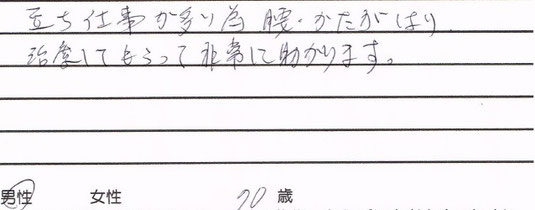 立ち仕事が多り為 腰・かたがはり
治療してもらって非常に助かります。
男性 女性 70 歳